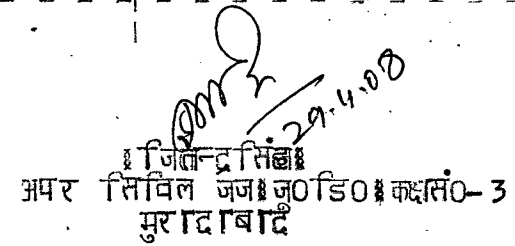 29.4.08
§ जितेन्द्र सिंह §
अपर सिविल जज § जू0डि0 § कक्ष सं0-3
मुरादाबाद